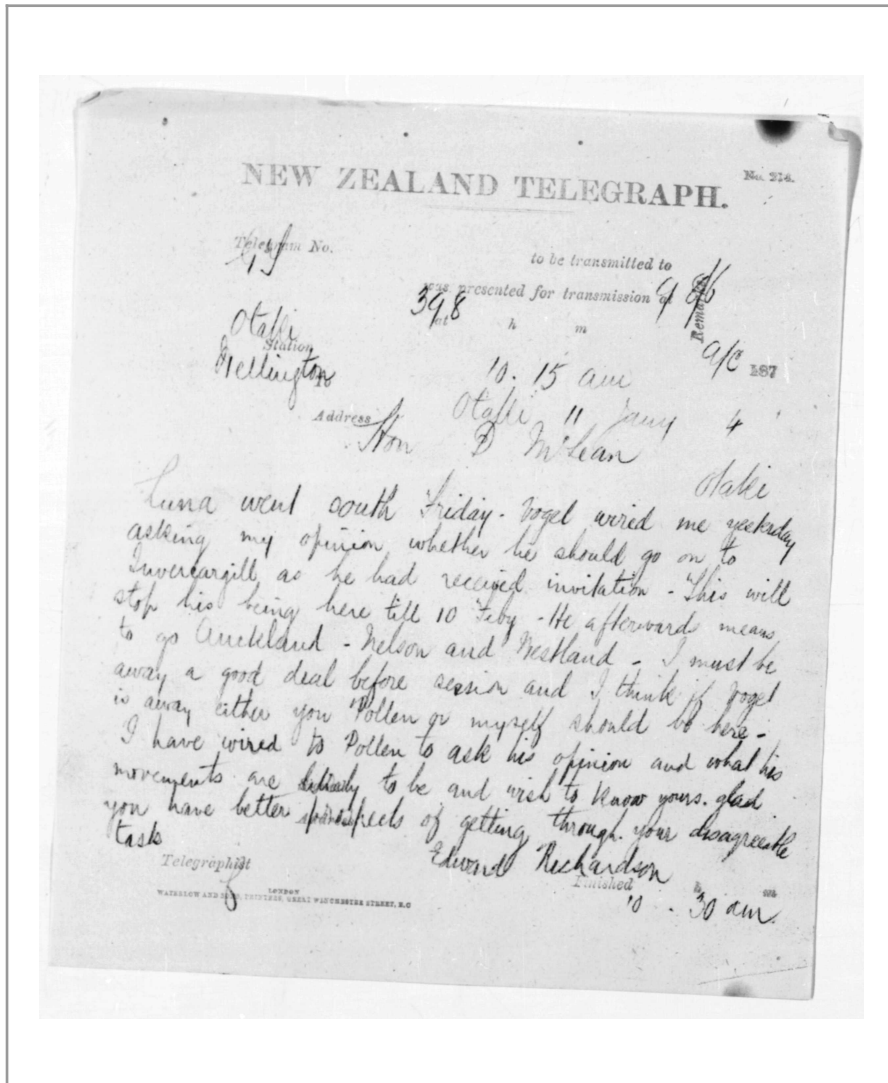 No. 214.
NEW ZEALAND TELEGRAPH.
Telegram No.
to be transmitted to
was presented for transmission at
398
at h m
Remarks
Otaki
Station
Wellington
10. 15 am
187
Address
Otaki 11 Jany 4
Hon D McLean
Otaki
Luna went south Friday - Vogel wired me yesterday
asking my opinion whether he should go on to
Invercargill as he had received invitation - This will
stop his being here till 10 Feby - He afterwards means
to go Auckland - Nelson and Westland - I must be
away a good deal before session and I think if Vogel
is away either you Pollen or myself should be here -
I have wired to Pollen to ask his opinion and what his
movements are likely to be and wish to know yours. glad
you have better prospects of getting through your disagreeable
task
Edward Richardson
Telegraphist
Finished h m
LONDON
WATERLOW AND SONS, PRINTERS, GREAT WINCHESTER STREET, E.C
10 - 30 am